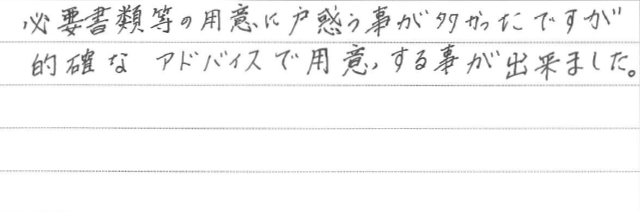 必要書類等の用意に戸惑う事が多かったですが
的確な アドバイスで用意する事が出来ました。